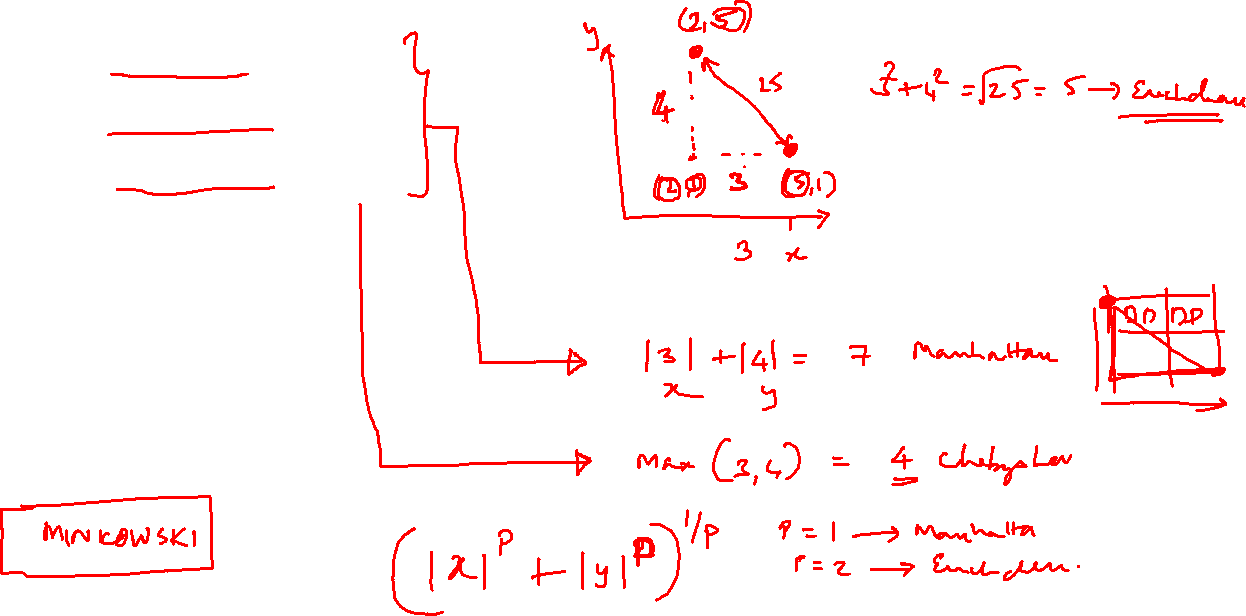 (2,5)
y
25
3² + 4² = √25 = 5 → Euclidean
4
(2,1) 3 (5,1)
3 x
|3| + |4| = 7 Manhattan
x y
Max (3,4) = 4 Chebyshev
MINKOWSKI
(|x|^p + |y|^p)^1/p
P = 1 → Manhatta
P = 2 → Euclidean.